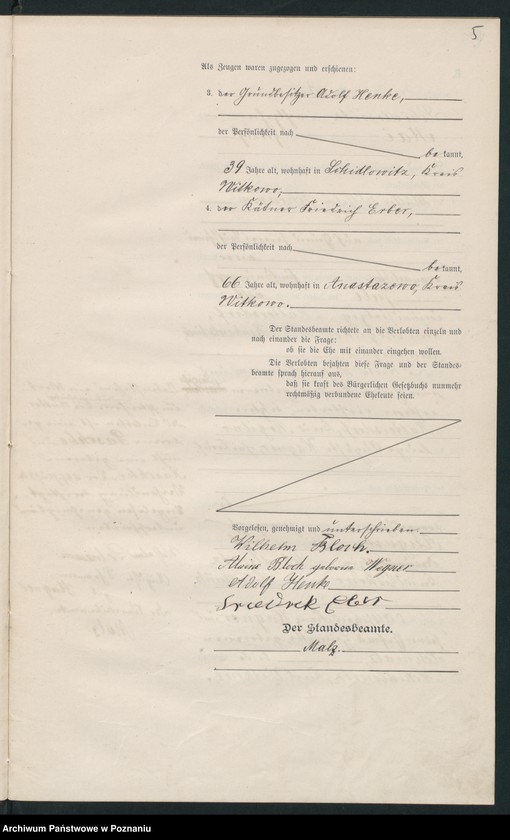 5
Als Zeugen waren zugezogen und erschienen:
3. der Grundbesitzer Adolf Henke,
der Persönlichkeit nach
be kannt,
39 Jahre alt, wohnhaft in Schidlowitz, Kreis
Witkowo,
4. der Kätner Friedrich Erber,
der Persönlichkeit nach
be kannt,
66 Jahre alt, wohnhaft in Anastazewo, Kreis
Witkowo.
Der Standesbeamte richtete an die Verlobten einzeln und
nach einander die Frage:
ob sie die Ehe mit einander eingehen wollen.
Die Verlobten bejahten diese Frage und der Standes-
beamte sprach hierauf aus,
daß sie kraft des Bürgerlichen Gesetzbuchs nunmehr
rechtmäßig verbundene Eheleute seien.
Vorgelesen, genehmigt und unterschrieben.
Wilhelm Bloch.
Alwine Bloch geborene Wegner
Adolf Henk
Friedrich Erber
Der Standesbeamte.
Malz.
Archiwum Państwowe w Poznaniu